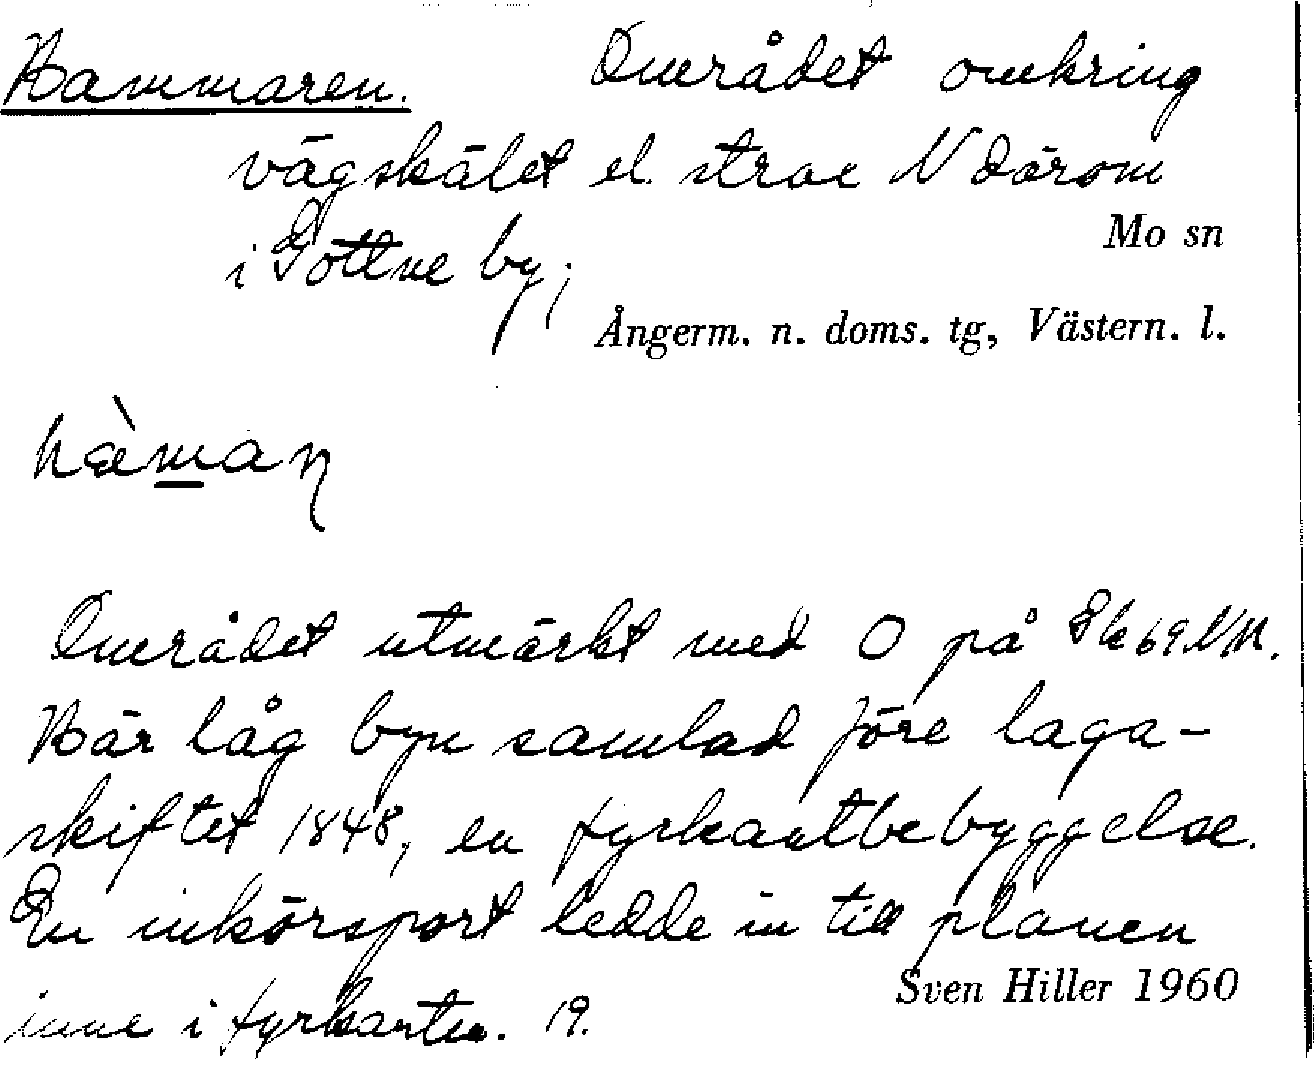 Hammaren. Området omkring
vägskälet el. strax N därom
Mo sn
i Gottne by;
Ångerm. n. doms. tg, Västern. l.
hàman
Området utmärkt med O på Sk 69 NM.
Här låg byn samlad före laga-
skiftet 1848, en fyrkantbebyggelse.
En inkörsport ledde in till planen
Sven Hiller 1960
inne i fyrkanten. 19.